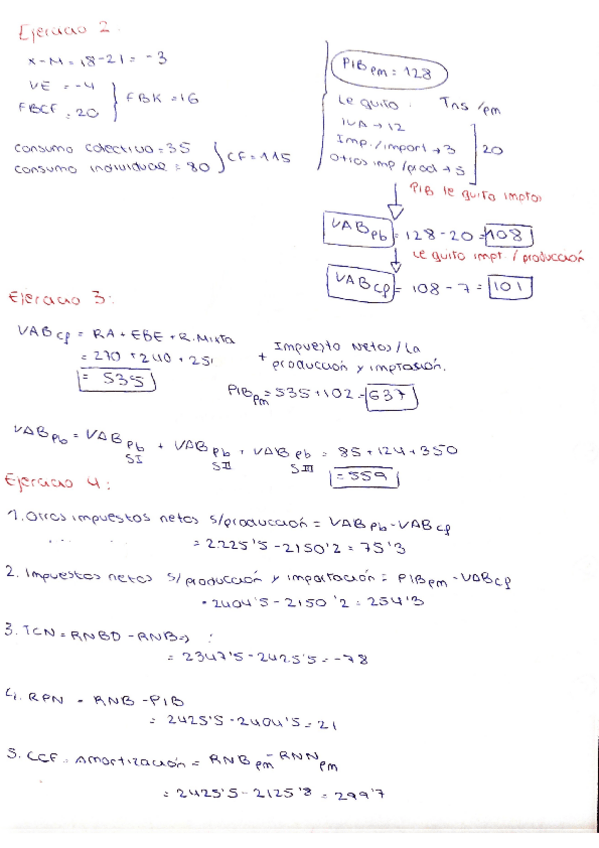 Ejercicio 2.
X-M = 18-21 = -3
VE = -4
FBCF = 20
FBK = 16
consumo colectivo = 35
consumo individual = 80
CF = 115
PIBpm = 128
Le quito: Tns/pm
IVA → 12
Imp./import → 3
Otros imp/prod → 5
20
PIB le quito imptos
VABpb = 128 - 20 = 108
Le quito impt./producción
VABcf = 108 - 7 = 101
Ejercicio 3:
VABcf = RA + EBE + R.Mixta
= 270 + 240 + 25
= 535
+ Impuesto Netos/La
producción y
PIBpm = 535 + 102 = 637
VABpb = VABpb SI + VABpb SII + VABpb SIII = 85 + 124 + 350
= 559
Ejercicio 4:
1. Otros impuestos netos s/producción = VABpb - VABcf
= 2225'5 - 2150'2 = 75'3
2. Impuestos netos s/producción y importación = PIBpm - VABcf
= 2404'5 - 2150'2 = 254'3
3. TCN = RNBD - RNB => :
= 2347'5 - 2425'5 = -78
4. RPN = RNB - PIB
= 2425'5 - 2404'5 = 21
5. CCF = Amortización = RNBpm - RNNpm
= 2425'5 - 2125'8 = 299'7